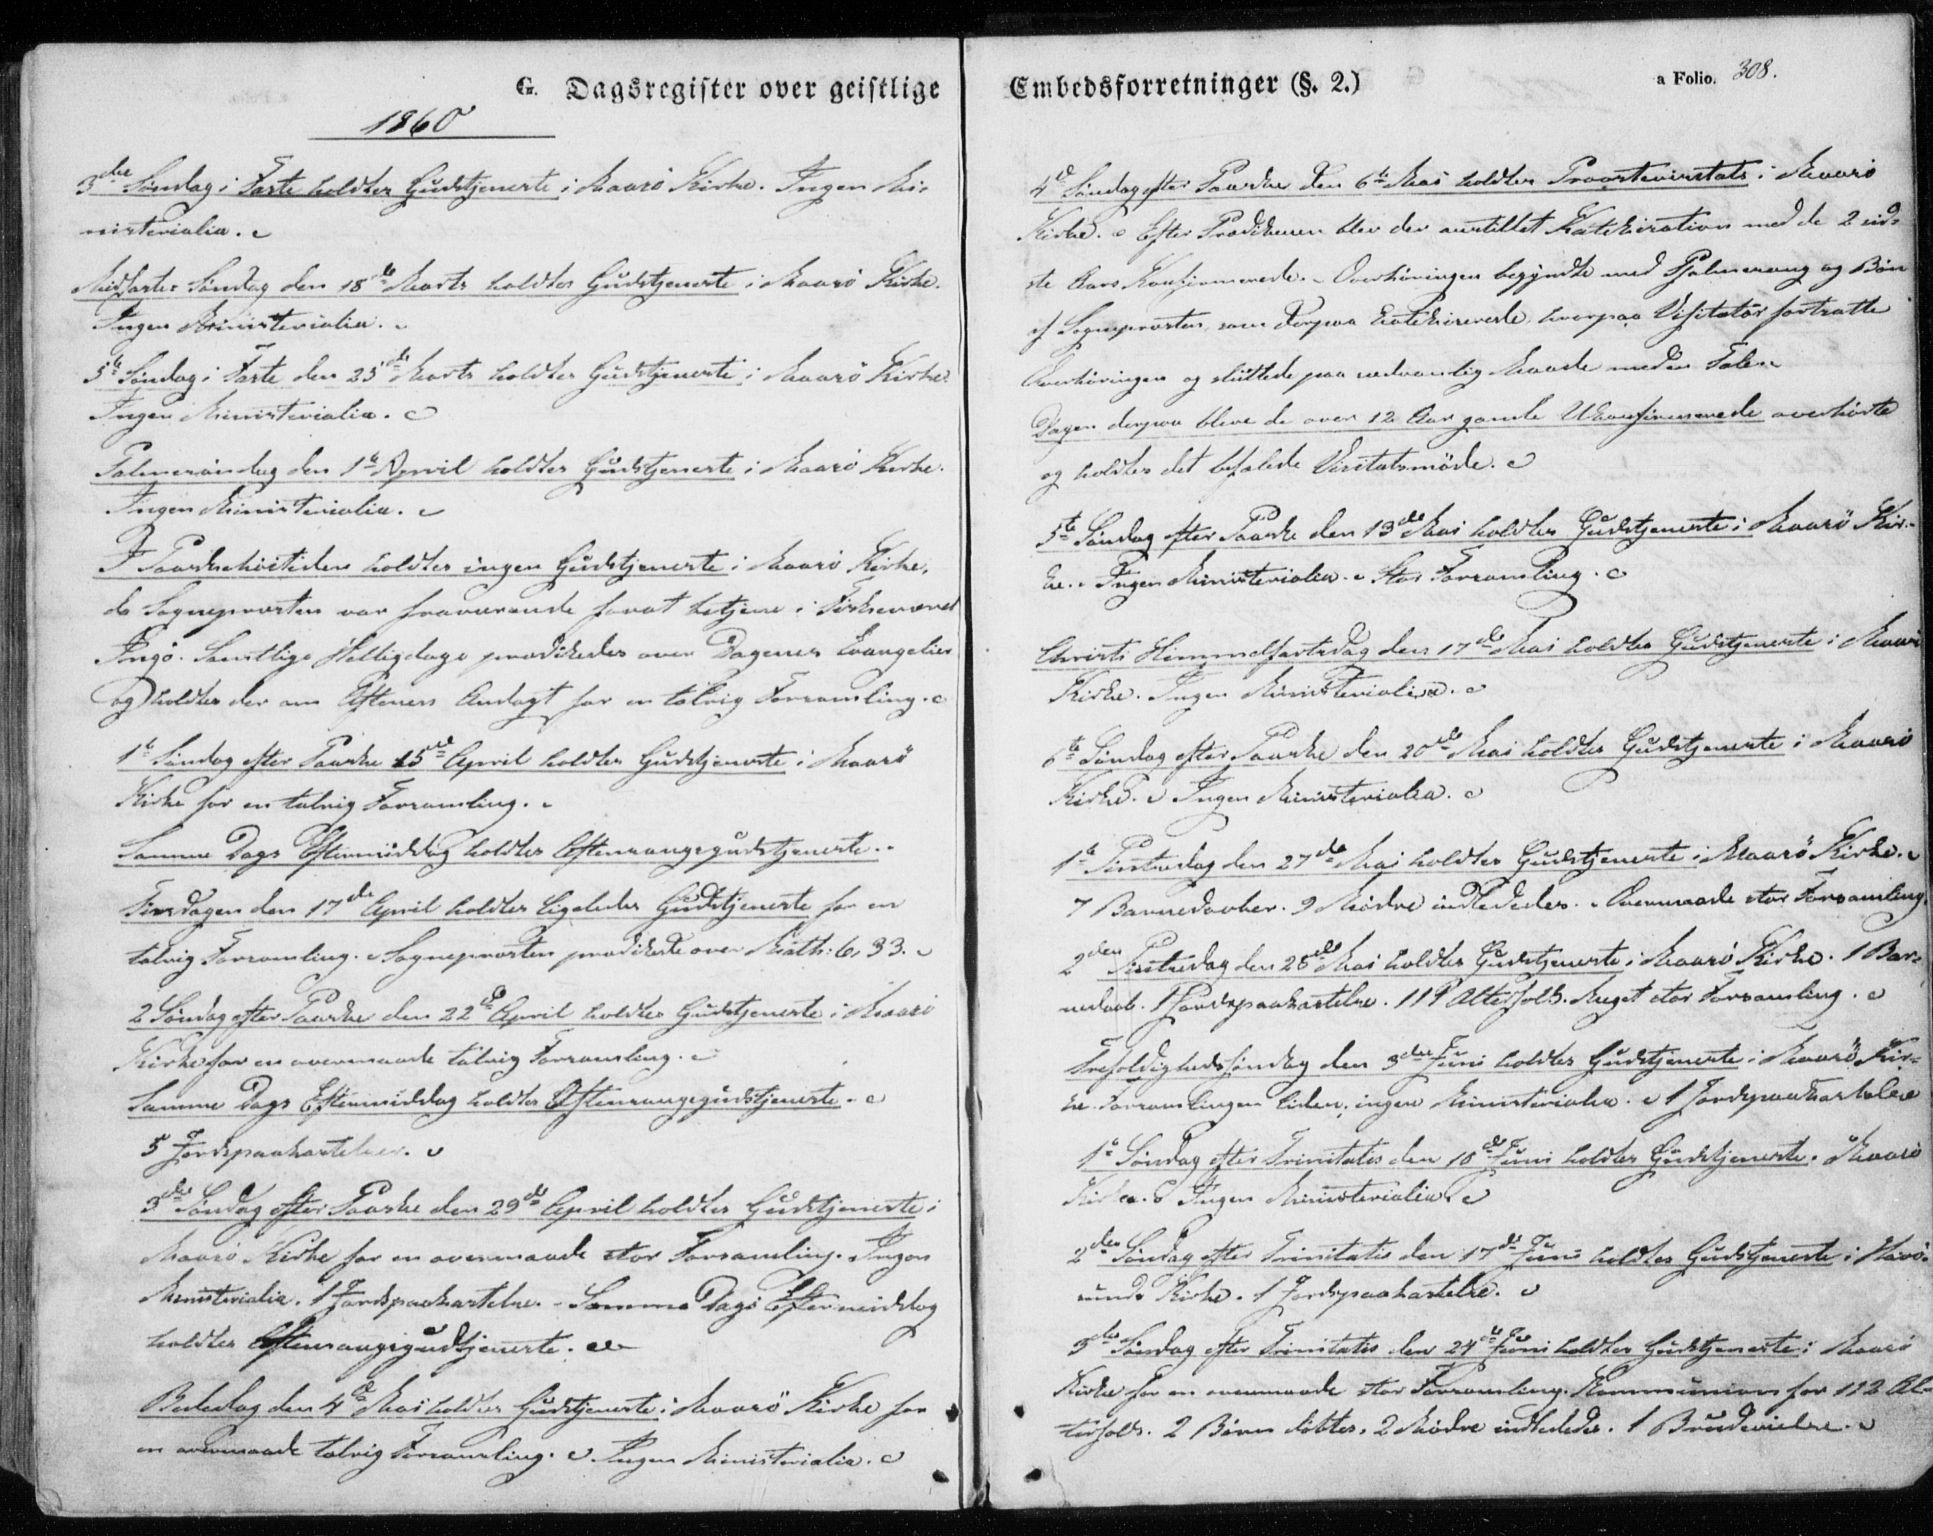 G. Dagsregister over geistlige
1860
3die Søndag i Faste holdtes Gudstjeneste i Maasö Kirke. Ingen Mi-
nisterialia.
Midfaste Søndag den 18de Marts holdtes Gudstjeneste i Maasö Kirke.
Ingen Ministerialia.
5te Søndag i Faste den 25de Marts holdtes Gudstjeneste i Maasö Kirke.
Ingen Ministerialia.
Palmesöndag den 1te April holdtes Gudstjeneste i Maasö Kirke.
Ingen Ministerialia.
I Paaskehöitiden holdtes ingen Gudstjeneste i Maasö Kirke,
da Sognepræsten var fraværende for at betjene i Fiskeværet
Ingö. Samtlige Helligdage prædikedes over Dagenes Evangelier
og holdtes der om Aftenen Andagt for en talrig Forsamling.
1te Søndag efter Paaske 15de April holdtes Gudstjeneste i Maasö
Kirke for en talrig Forsamling.
Samme Dags Eftermiddag holdtes Aftensangsgudstjeneste.
Tirsdagen den 17de April holdtes ligeledes Gudstjeneste for en
talrig Forsamling. Sognepræsten prædikede over Math: 6, 33.
2 Søndag efter Paaske den 22de April holdtes Gudstjeneste i Maasö
Kirke for en overmaade talrig Forsamling.
Samme Dags Eftermiddag holdtes Aftensangsgudstjeneste.
5 Jordspaakastelser.
3die Søndag efter Paaske den 29de April holdtes Gudstjeneste i
Maasö Kirke for en overmaade stor Forsamling. Ingen
Ministerialia. 1 Jordspaakastelse. - Samme Dags Eftermiddag
holdtes Aftensangsgudstjeneste.
Bededag den 4de Mai holdtes Gudstjeneste i Maasö Kirke for
en overmaade talrig Forsamling. Ingen Ministerialia.
Embedsforretninger (§. 2.)
a Folio. 308.
4de Søndag efter Paaske den 6te Mai holdtes Proostevisitats i Maasö
Kirke. Efter Prædikenen blev der anstillet Katekisation med de 2 sid-
ste Aars Konfirmerede. - Overhöringen begyndte med Psalmesang og Bön
af Sognepræsten, som derpaa katekiserede, hvorpaa Visitator fortsatte
Overhöringen og sluttede paa sædvanlig Maade med en Tale.
Dagen derpaa bleve de over 12 Aar gamle Ukonfirmerede overhörte
og holdtes det befalede Visitatsmöde.
5te Søndag efter Paaske den 13de Mai holdtes Gudstjeneste i Maasö Kir-
ke. Ingen Ministerialia. Stor Forsamling.
Christi Himmelfartsdag den 17de Mai holdtes Gudstjeneste i Maasö
Kirke. Ingen Ministerialia.
6te Søndag efter Paaske den 20de Mai holdtes Gudstjeneste i Maasö
Kirke. Ingen Ministerialia.
1te Pintsedag den 27de Mai holdtes Gudstjeneste i Maasö Kirke.
7 Barnedaaber. 9 Mödre indlededes. Overmaade stor Forsamling.
2den Pintsedag den 28de Mai holdtes Gudstjeneste i Maasö Kirke. 1 Bar-
nedaab. 1 Jordspaakastelse. 119 Alterfolk. Meget stor Forsamling.
Trefoldighedssöndag den 3die Juni holdtes Gudstjeneste i Maasö Kir-
ke. Forsamlingen liden, ingen Ministerialia. 1 Jordspaakastelse
1te Søndag efter Trinitatis den 10de Juni holdtes Gudstjeneste i Maasö
Kirke. Ingen Ministerialia.
2den Søndag efter Trinitatis den 17de Juni holdtes Gudstjeneste i Havö-
sunds Kirke. 1 Jordspaakastelse.
3die Søndag efter Trinitatis den 24de Juni holdtes Gudstjeneste i Maasö
Kirke for en overmaade stor Forsamling. Kommunion for 112 Al-
terfolk. 2 Börn döbtes. 2 Mödre indlededes. 1 Brudevielse.